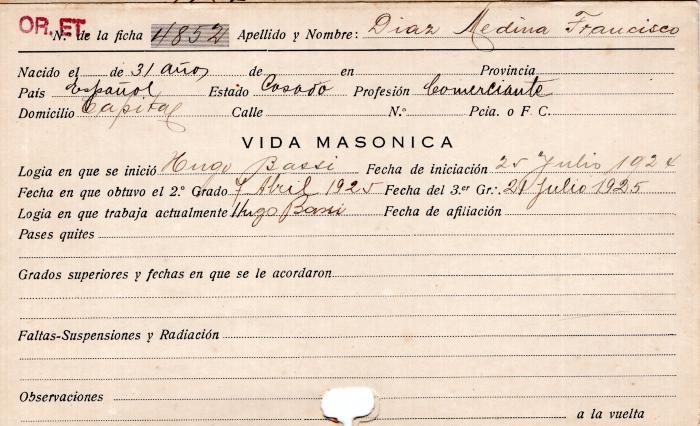 OR. ET.
N.º de la ficha 4852 Apellido y Nombre: Diaz Medina Francisco
Nacido el de 31 años de en Provincia
País Español Estado Casado Profesión Comerciante
Domicilio Capital Calle N.º Pcia. o F. C.
VIDA MASONICA
Logia en que se inició Hugo Bassi Fecha de iniciación 25 Julio 1924
Fecha en que obtuvo el 2.º Grado 7 Abril 1925 Fecha del 3.er Gr. 21 Julio 1925
Logia en que trabaja actualmente Hugo Bassi Fecha de afiliación
Pases quites
Grados superiores y fechas en que se le acordaron
Faltas-Suspensiones y Radiación
Observaciones
a la vuelta